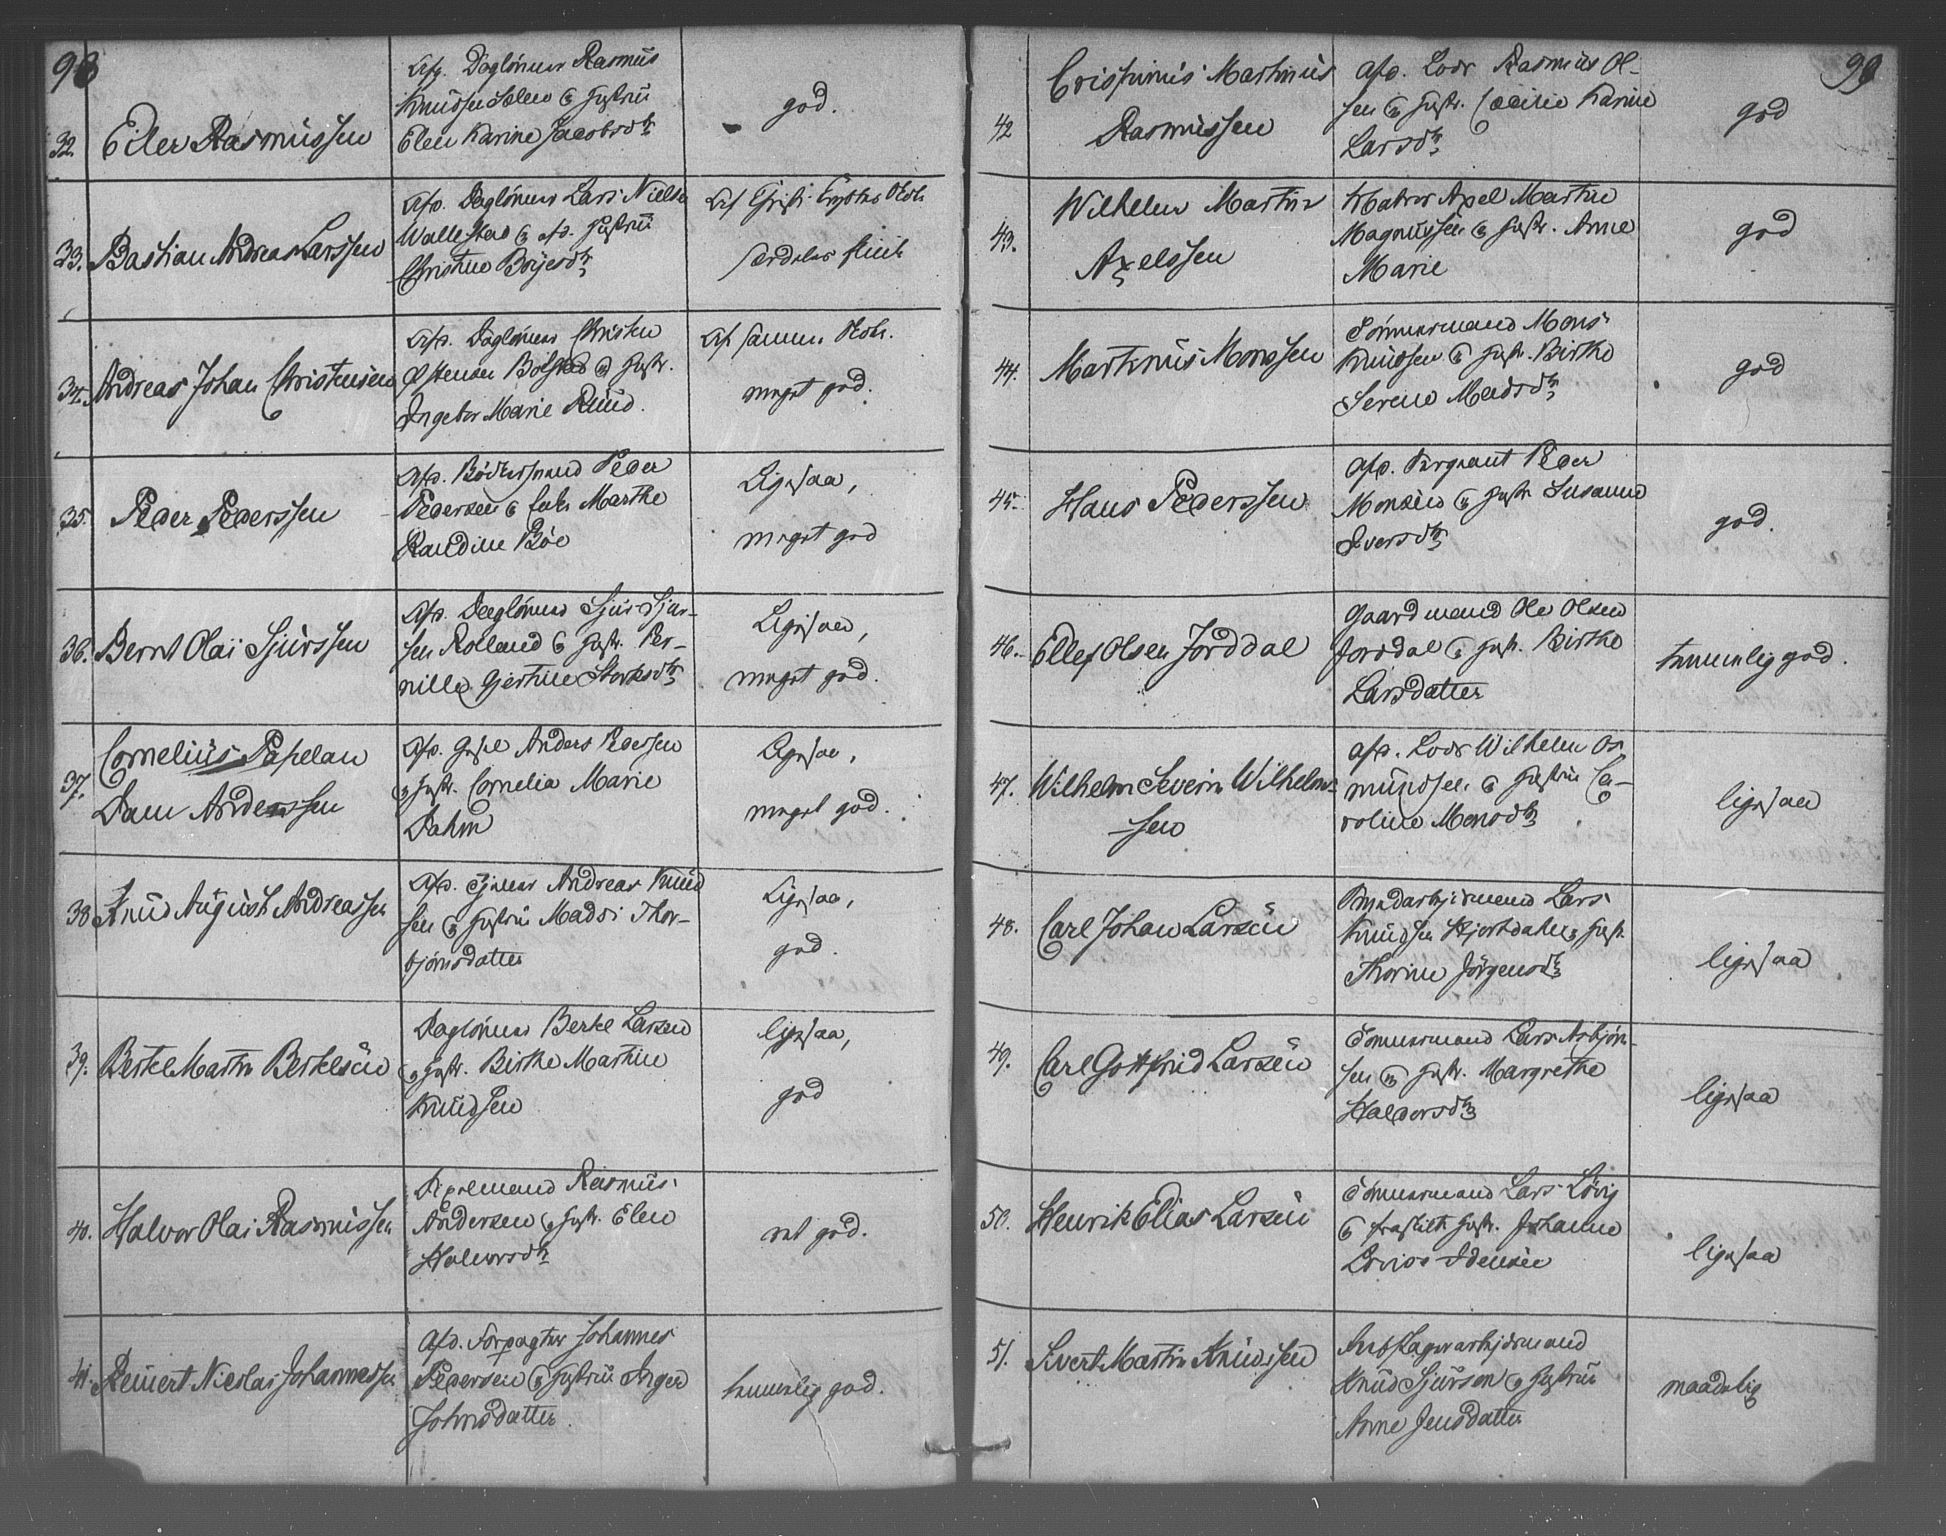 98
32.
Eiler Rasmussen
Afg. Daglönner Rasmus
Knudsen Salen & Hustru
Elen Karine Jacobsdtr
god.
33.
Bastian Andreas Larssen
Afd. Daglönner Lars Nielsen
Wallestad & afd. Hustru
Christine Börjesdtr
Af Skole
særdeles flink
34.
Andreas Johan Christensen
Afd. Daglönner Christen
Ostensen Bölstad & Hustr.
Ingebor Marie Ruud.
Af samme Skole.
meget god.
35.
Peder Pederssen
Afd. Bödkersvend Peder
Pedersen & Marthe
Randine Böe
Ligesaa,
meget god
36.
Bernt Olai Sjurssen
Afd. Daglönner Sjur Sjur-
sen Rolland & Hustr. Per-
nille Gjertine Storksdtr
Ligesaa,
meget god.
37.
Cornelius Papelau
Dam Anderssen
Afd. Anders Pedersen
& Hustr. Cornelia Marie
Dahm
Ligesaa,
meget god.
38
Knud August Andreassen
Afd. Andreas Knud
sen & Hustru Madsi Thor-
björnsdatter
Ligesaa,
god.
39.
Bertel Martin Bertelsen
Daglönner Bertel Larsen
& Hustr. Birthe Martine
Knudsen
ligesaa,
god
40.
Halvor Olai Rasmussen
Rasmus
Andersen & Hustr. Elen
Halvorsdtr
ret god.
41.
Reinert Nicolai Johannessen
Afd. Forpagter Johannes
Pedersen & Hustru Inger
Johnsdatter.
temmelig god.
99
42
Cristinius Martinius
Rasmussen
Afd. Lods Rasmus Ol-
sen & Hustr. Cecilie Karine
Larsdtr
god
43.
Wilhelm Martin
Axelssen
Matros Axel Martin
Magnussen & Hustr. Anne
Marie
god
44.
Martinus Monssen
Tömmermand Mons
Knudsen & Hustr. Birthe
Serene Madsdtr
god
45.
Hans Pederssen
Afd. Sergeant Peder
Monsen & Hustr Susanne
Iversdtr
god.
46.
Ellef Olsen Jorddal
Gaardmand Ole Olsen
Jorddal & Hustr. Birthe
Larsdatter
temmelig god.
47.
Wilhelm Severin Wilhelm-
sen
Afd. Lods Wilhelm Os
mundsen & Hustru Ca-
roline Monsdtr
ligesaa
48.
Carl Johan Larsen
Lars
Knudsen Hjortdahl & Hustr.
Thorine Jörgensdtr
ligesaa
49.
Carl Gottfried Larsen
Tömmermand Lars Asbjörn-
sen & Hustr. Margrethe
Haldorsdtr
ligesaa
50.
Henrik Elias Larsen
Tömmermand Lars Lövig
& fraskilt Hustr. Johanne
Lovise Idensen
ligesaa
51.
Sivert Martin Knudssen
Knud Sjursen & Hustru
Anne Jensdatter
maadelig